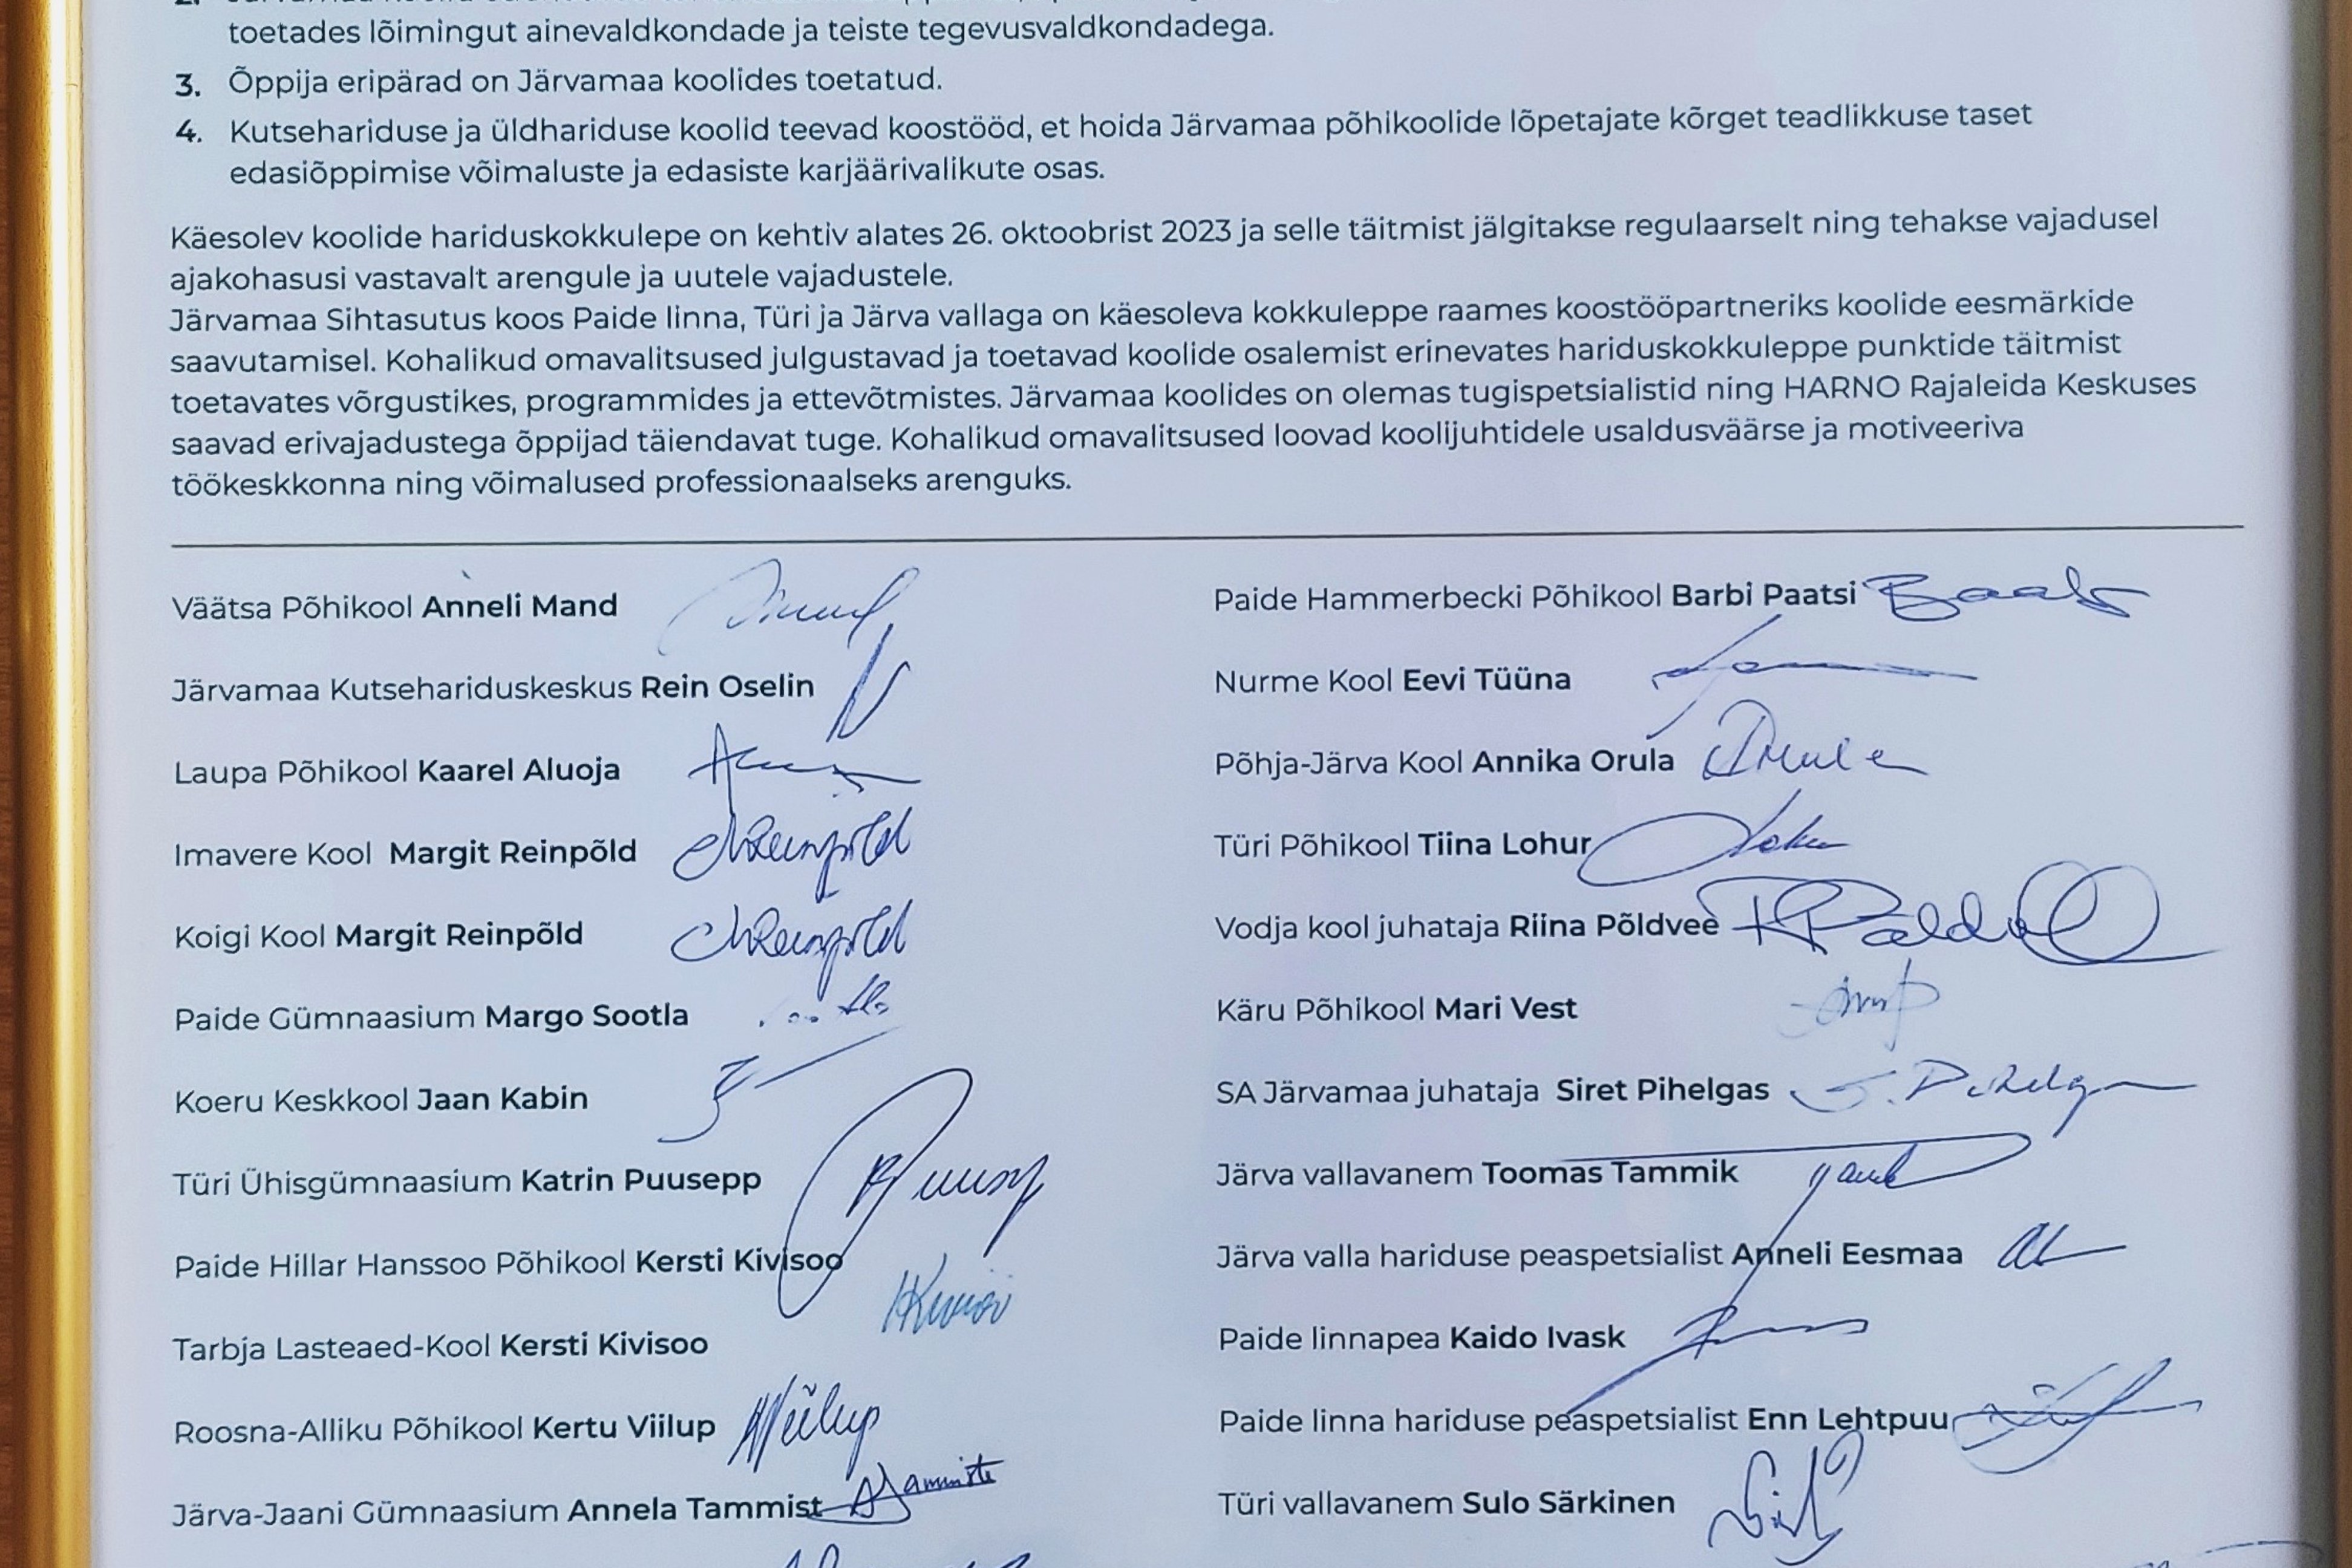 toetades lõimingut ainevaldkondade ja teiste tegevusvaldkondadega.
3. Õppija eripärad on Järvamaa koolides toetatud.
4. Kutsehariduse ja üldhariduse koolid teevad koostööd, et hoida Järvamaa põhikoolide lõpetajate kõrget teadlikkuse taset
edasiõppimise võimaluste ja edasiste karjäärivalikute osas.
Käesolev koolide hariduskokkulepe on kehtiv alates 26. oktoobrist 2023 ja selle täitmist jälgitakse regulaarselt ning tehakse vajadusel
ajakohasusi vastavalt arengule ja uutele vajadustele.
Järvamaa Sihtasutus koos Paide linna, Türi ja Järva vallaga on käesoleva kokkuleppe raames koostööpartneriks koolide eesmärkide
saavutamisel. Kohalikud omavalitsused julgustavad ja toetavad koolide osalemist erinevates hariduskokkuleppe punktide täitmist
toetavates võrgustikes, programmides ja ettevõtmistes. Järvamaa koolides on olemas tugispetsialistid ning HARNO Rajaleida Keskuses
saavad erivajadustega õppijad täiendavat tuge. Kohalikud omavalitsused loovad koolijuhtidele usaldusväärse ja motiveeriva
töökeskkonna ning võimalused professionaalseks arenguks.
Väätsa Põhikool Anneli Mand
Järvamaa Kutsehariduskeskus Rein Oselin
Laupa Põhikool Kaarel Aluoja
Imavere Kool Margit Reinpõld
Koigi Kool Margit Reinpõld
Paide Gümnaasium Margo Sootla
Koeru Keskkool Jaan Kabin
Türi Ühisgümnaasium Katrin Puusepp
Paide Hillar Hanssoo Põhikool Kersti Kivisoo
Tarbja Lasteaed-Kool Kersti Kivisoo
Roosna-Alliku Põhikool Kertu Viilup
Järva-Jaani Gümnaasium Annela Tammist
Paide Hammerbecki Põhikool Barbi Paatsi
Nurme Kool Eevi Tüüna
Põhja-Järva Kool Annika Orula
Türi Põhikool Tiina Lohur
Vodja kool juhataja Riina Põldvee
Käru Põhikool Mari Vest
SA Järvamaa juhataja Siret Pihelgas
Järva vallavanem Toomas Tammik
Järva valla hariduse peaspetsialist Anneli Eesmaa
Paide linnapea Kaido Ivask
Paide linna hariduse peaspetsialist Enn Lehtpuu
Türi vallavanem Sulo Särkinen